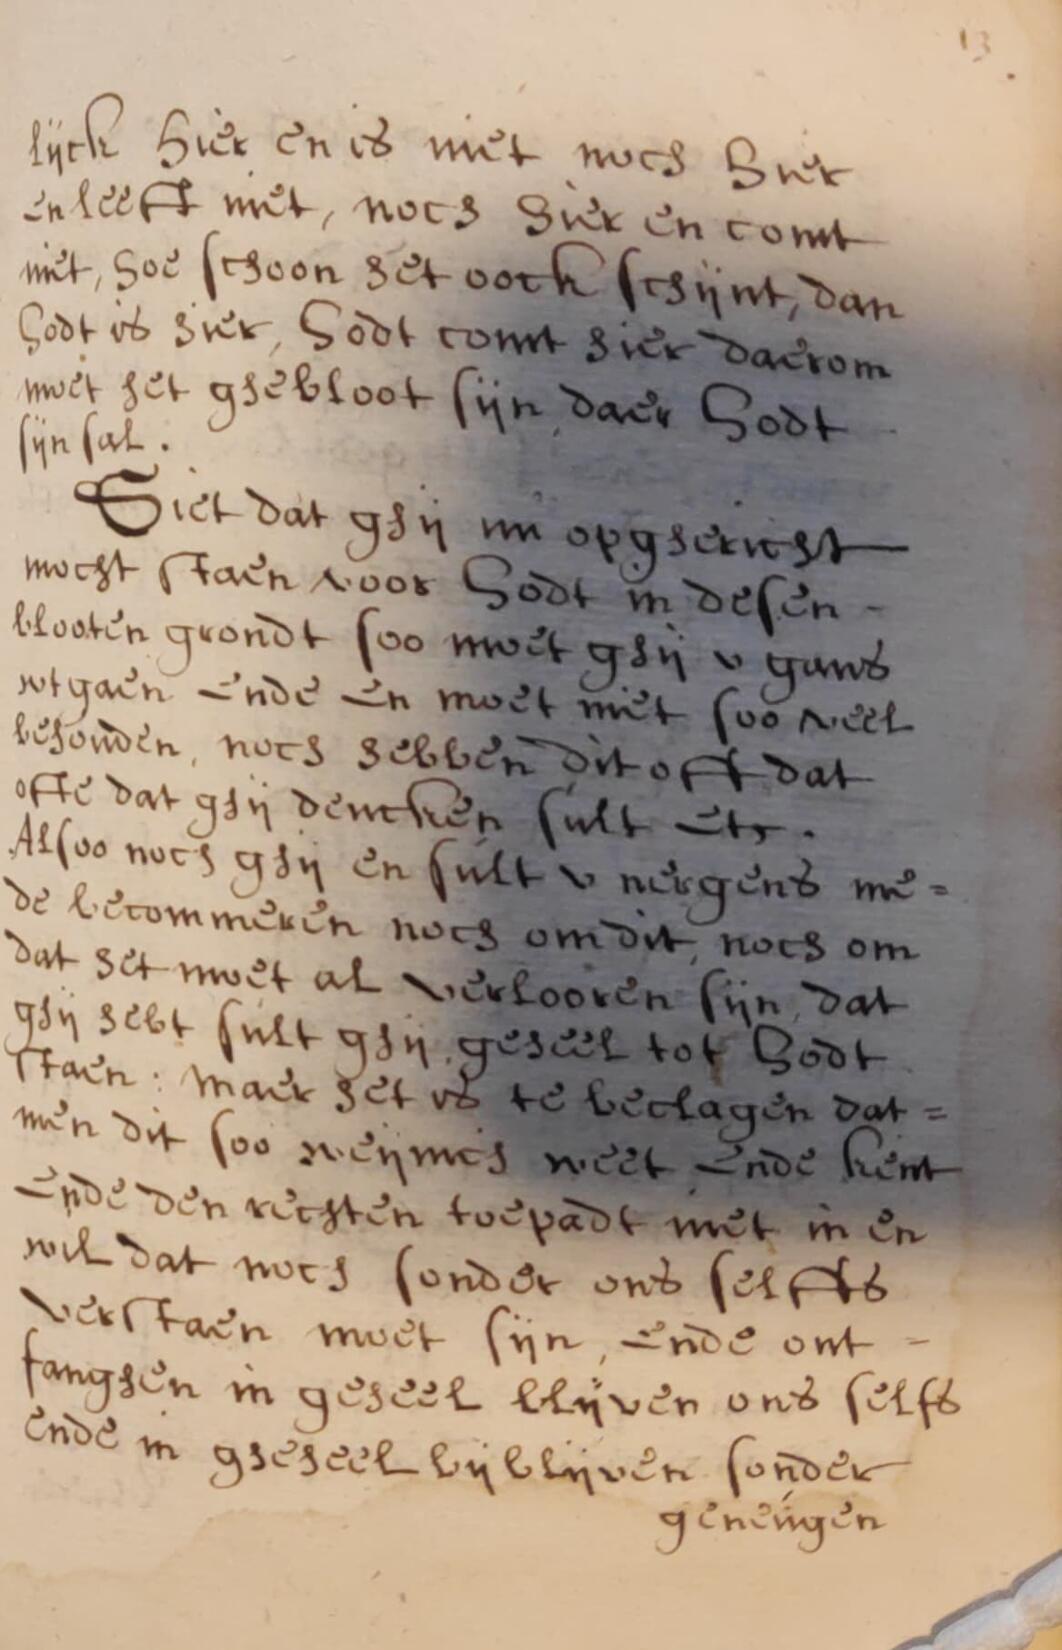 13
lijck hier en is niet noch hier
en leeft niet, noch hier en comt
niet, hoe schoon het oock schijnt, dan
Godt is hier, Godt comt hier daerom
moet het ghebloot sijn, daer Godt
sijn sal.
Siet dat ghij nu opghericht
mocht staen voor Godt in desen
blooten grondt soo moet ghij v gans
wtgaen ende en moet niet soo veel
behouden, noch hebben dit oft dat
ofte dat ghij dencken sult etc.
Alsoo noch ghij en sult v nergens me=
de becommeren noch om dit, noch om
dat het moet al verlooren sijn, dat
ghij hebt sult ghij geheel tot Godt
staen: maer het is te beclagen dat=
men dit soo weijnich weet ende kent
ende den rechten toepadt niet in en
wil dat noch sonder ons selfts
verstaen moet sijn, ende ont=
fanghen in geheel blijven ons selfs
ende in gheheel bij blijven sonder
geneugen